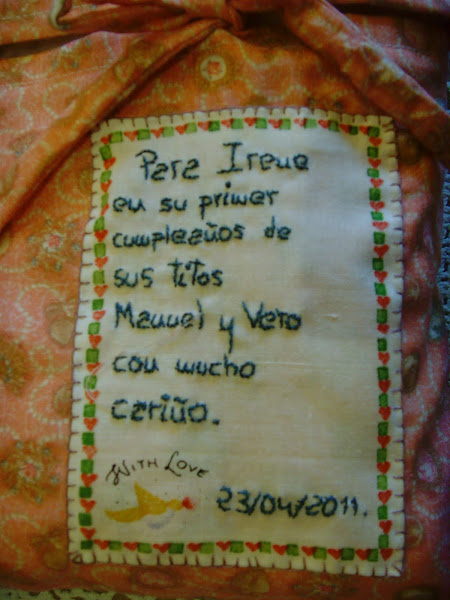 Para Irene
en su primer
cumpleaños de
sus titos
Manuel y Vero
con mucho
cariño.
WITH LOVE
23/04/2011.